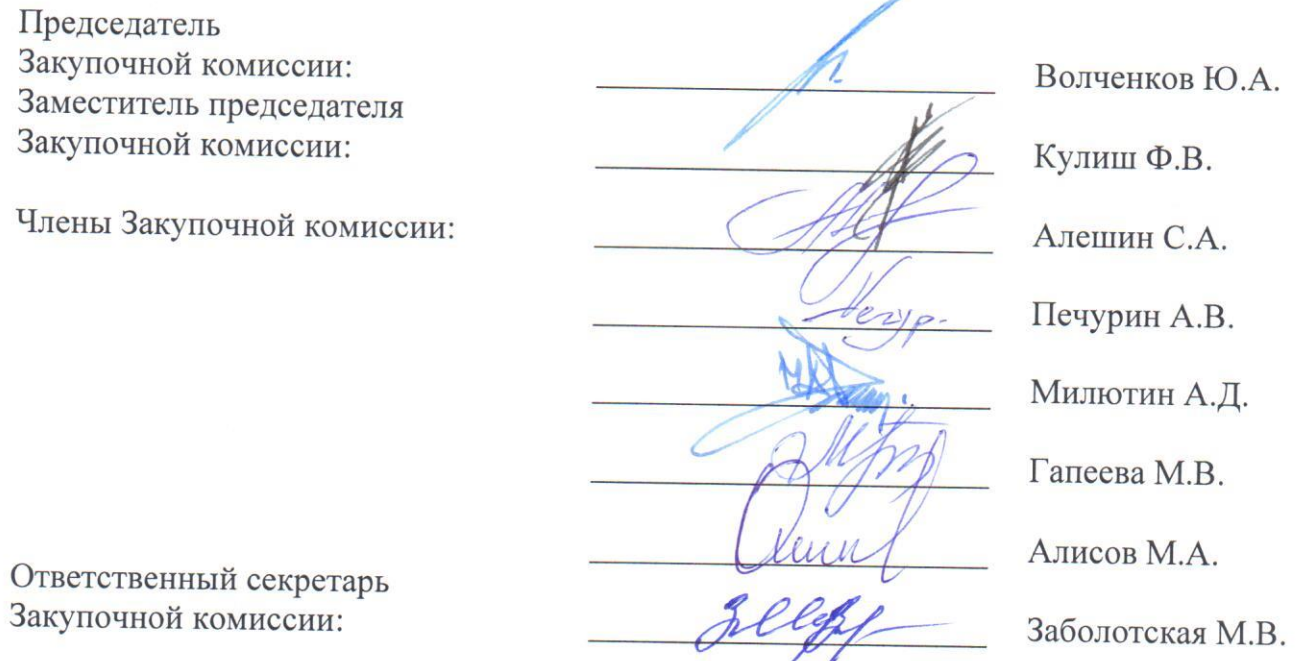 Председатель
Закупочной комиссии: Волченков Ю.А.
Заместитель председателя
Закупочной комиссии: Кулиш Ф.В.
Члены Закупочной комиссии: Алешин С.А.
Печурин А.В.
Милютин А.Д.
Гапеева М.В.
Алисов М.А.
Ответственный секретарь
Закупочной комиссии: Заболотская М.В.